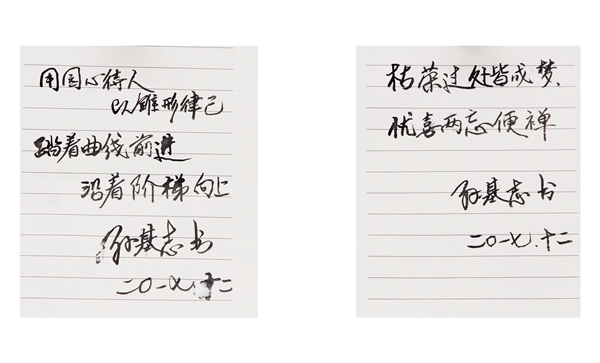 用圆心待人
以锥形律己
踏着曲线前进
沿着阶梯向上
孙基志书
二〇一七.十二
枯荣过处皆成梦、
忧喜两忘便禅
孙基志书
二〇一七.十二